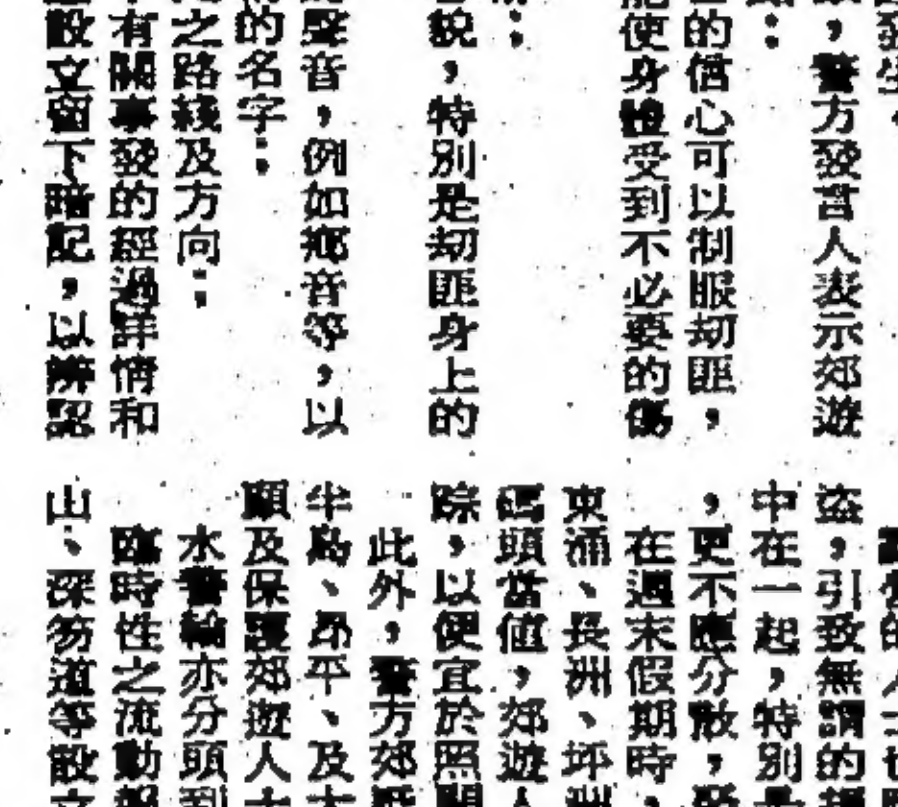 警方發言人表示郊遊
的信心可以制服刧匪，
使身體受到不必要的傷
貌，特別是刧匪身上的
聲音，例如鄉音等，以
的名字；
之路綫及方向；
有關事發的經過詳情和
設立留下暗記，以辨認
盜，引致無謂的
中在一起，特別
，更不應分散，
在週末假期時，
東涌、長洲、坪洲
碼頭當值，郊遊人
踪，以便宜於照顧
此外，警方郊
半島、昂平、及大
顧及保護郊遊人士
水警輪亦分頭到
臨時性之流動報
山、深笏道等設立